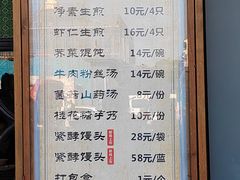 净素生煎 10元/4只
虾仁生煎 16元/4只
荠菜馄饨 14元/碗
牛肉粉丝汤 14元/碗
菌菇山药汤 8元/份
桂花糖芋艿 10元/份
紧酵馒头 28元/袋
紧酵馒头 58元/蓝
打包盒 1元/个